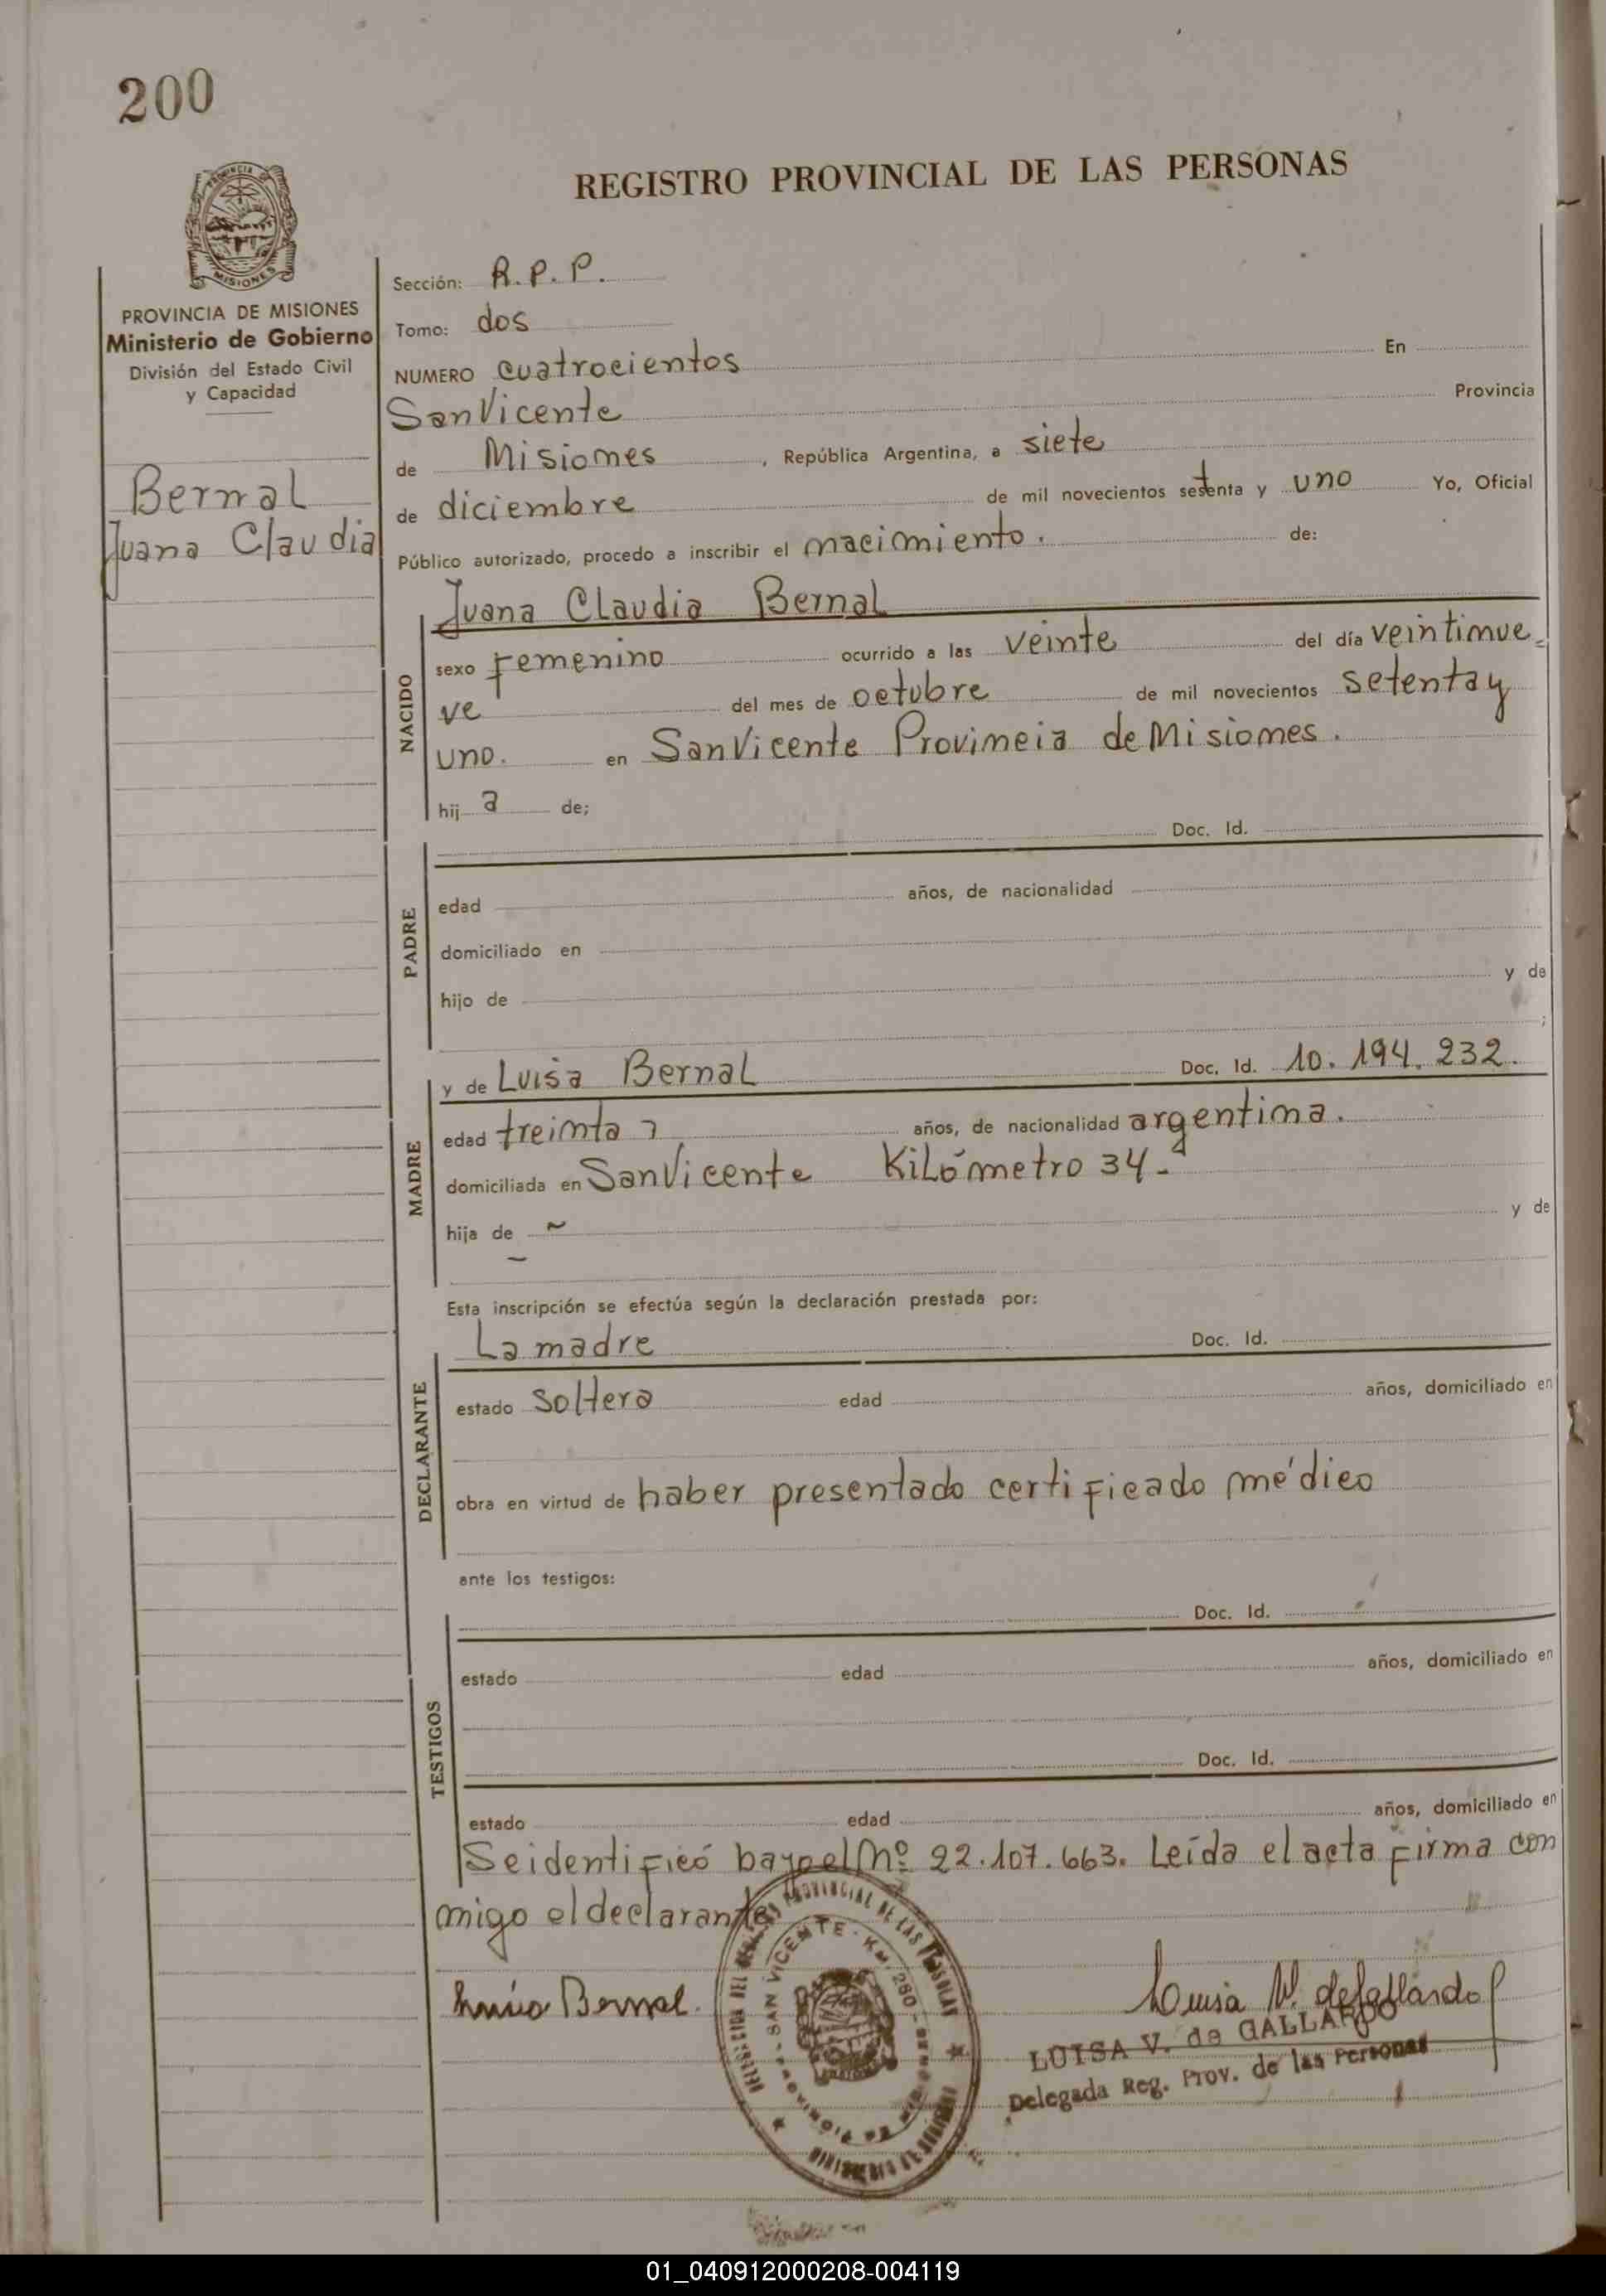 200
REGISTRO PROVINCIAL DE LAS PERSONAS
MISIONES
PROVINCIA DE MISIONES
Ministerio de Gobierno
División del Estado Civil
y Capacidad
Bernal
Juana Claudia
Sección: R.P.P.
Tomo: dos
NUMERO cuatrocientos En
San Vicente Provincia
de Misiones, República Argentina, a siete
de diciembre de mil novecientos setenta y uno Yo, Oficial
Público autorizado, procedo a inscribir el nacimiento. de:
NACIDO
Juana Claudia Bernal
sexo femenino ocurrido a las veinte del día veintinue=
ve del mes de octubre de mil novecientos setenta y
uno. en San Vicente Provincia de Misiones.
hij a de;
PADRE
Doc. Id.
edad años, de nacionalidad
domiciliado en
hijo de y de
;
MADRE
y de Luisa Bernal Doc. Id. 10.194.232.
edad treinta años, de nacionalidad argentina.
domiciliada en San Vicente Kilómetro 34-
hija de ~ y de
–
Esta inscripción se efectúa según la declaración prestada por:
DECLARANTE
La madre Doc. Id.
estado soltera edad años, domiciliado en
obra en virtud de haber presentado certificado médico
ante los testigos:
TESTIGOS
Doc. Id.
estado edad años, domiciliado en
Doc. Id.
estado edad años, domiciliado en
Se identificó bayo el Nº 22.107.663. Leída el acta firma con
migo el declarante
Bernal.
Luisa V. de Gallardo
LUISA V. de GALLARDO
Delegada Reg. Prov. de las Personas
PROVINCIAL DE LAS PERSONAS
SAN VICENTE - KM. 280
01_040912000208-004119